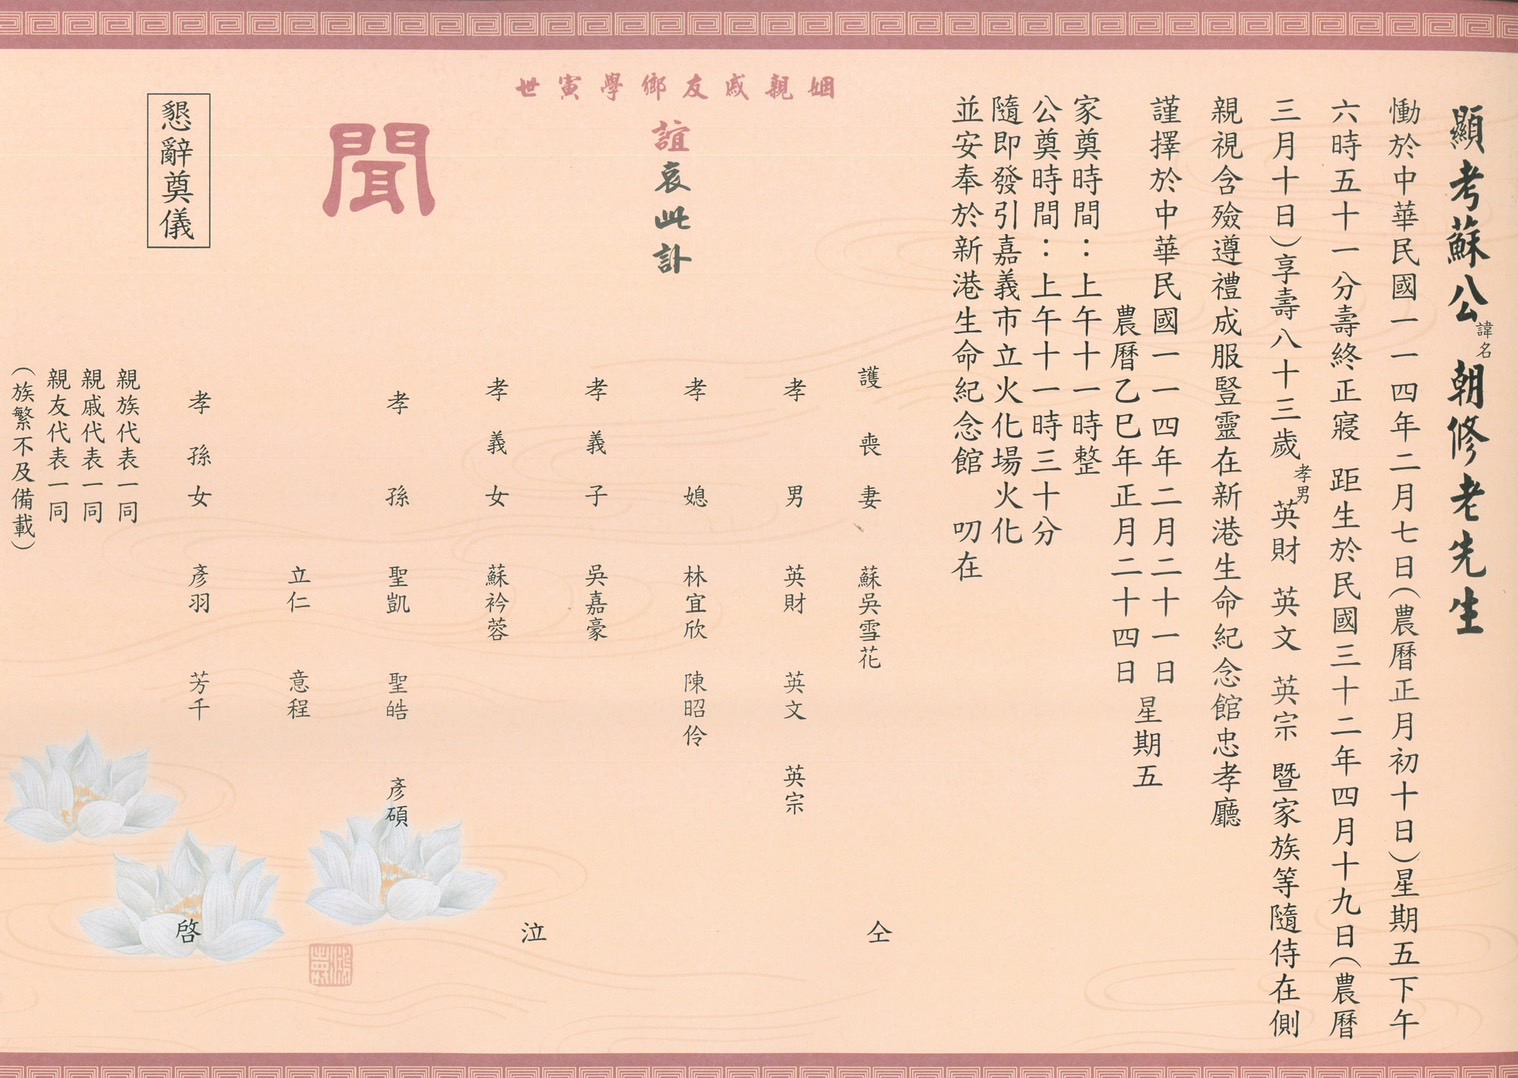 顯考蘇公諱名朝修老先生
慟於中華民國一一四年二月七日(農曆正月初十日)星期五下午
六時五十一分壽終正寢 距生於民國三十二年四月十九日(農曆
三月十日)享壽八十三歲孝男英財 英文 英宗 暨家族等隨侍在側
親視含殮遵禮成服豎靈在新港生命紀念館忠孝廳
謹擇於中華民國一一四年二月二十一日
農曆乙巳年正月二十四日
星期五
家奠時間：上午十一時整
公奠時間：上午十一時三十分
隨即發引嘉義市立火化場火化
並安奉於新港生命紀念館 叨在
姻親戚友鄉學寅世
誼哀此訃
聞
懇辭奠儀
護喪妻 蘇吳雪花
孝男 英財 英文 英宗
孝媳 林宜欣 陳昭伶
孝義子 吳嘉豪
孝義女 蘇衿蓉
孝孫 聖凱 聖皓 彥碩
立仁 意程
孝孫女 彥羽 芳千
仝 泣 啓
親族代表一同
親戚代表一同
親友代表一同
(族繁不及備載)